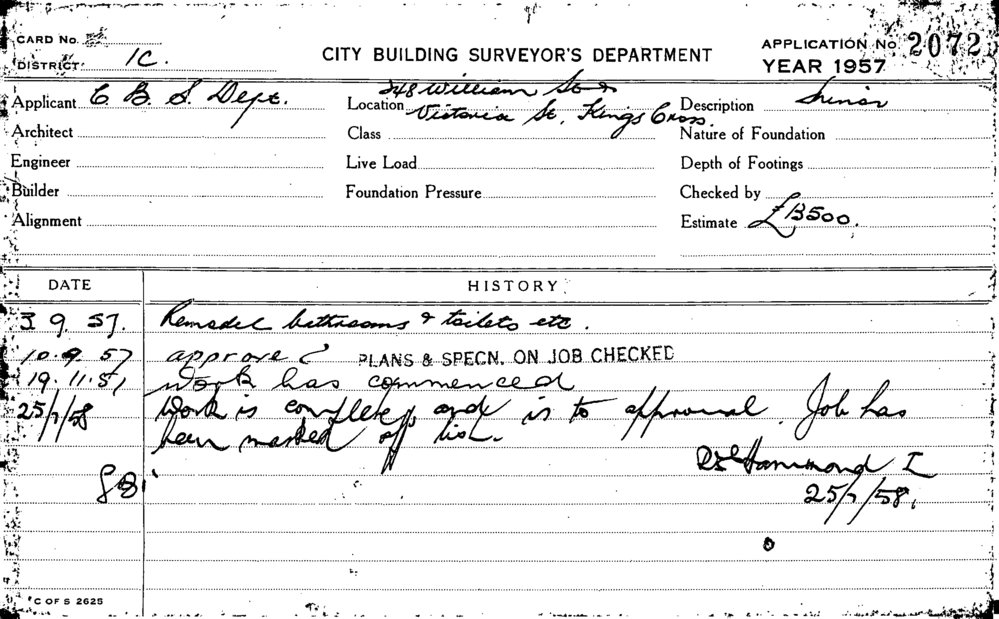 CARD No.
CITY BUILDING SURVEYOR'S DEPARTMENT
APPLICATION No. 2072
DISTRICT 1C.
YEAR 1957
Applicant C. B. S. Dept.
Location 248 William St &
Victoria St, Kings Cross.
Description Minor
Architect
Class
Nature of Foundation
Engineer
Live Load
Depth of Footings
Builder
Foundation Pressure
Checked by
Alignment
Estimate £13500.
DATE HISTORY
3 9. 57. Remodel bathrooms & toilets etc.
10.9. 57 approved PLANS & SPECN. ON JOB CHECKED
19.11.57 Work has commenced
25/7/58 Work is complete, and is to approval. Job has
been marked off list.
Hammond I
25/7/58.
C OF S 2625